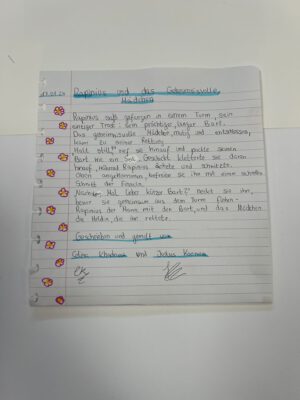 Rapinius und das Geheimnisvolle
Mädchen
Rapinius saß gefangen in einem Turm, sein
einziger Trost: sein prächtiger, langer Bart.
Das geheimnisvolle Mädchen, mutig und entschlossen,
kam zu seiner Rettung.
"Halt still!" rief sie hinauf und packte seinen
Bart wie ein Seil. Geschickt kletterte sie daran
hinauf, während Rapinius ächzte und schwitzte.
Oben angekommen, befreite sie ihn mit einem schnellen
Schnitt der Fesseln.
Nächstes Mal lieber kürzer Bart?" neckt sie ihn,
bevor sie gemeinsam aus dem Turm flohen-
Rapinius der Mann mit dem Bart, und das Mädchen
die Heldin, die ihn rettete.
Geschrieben und
und